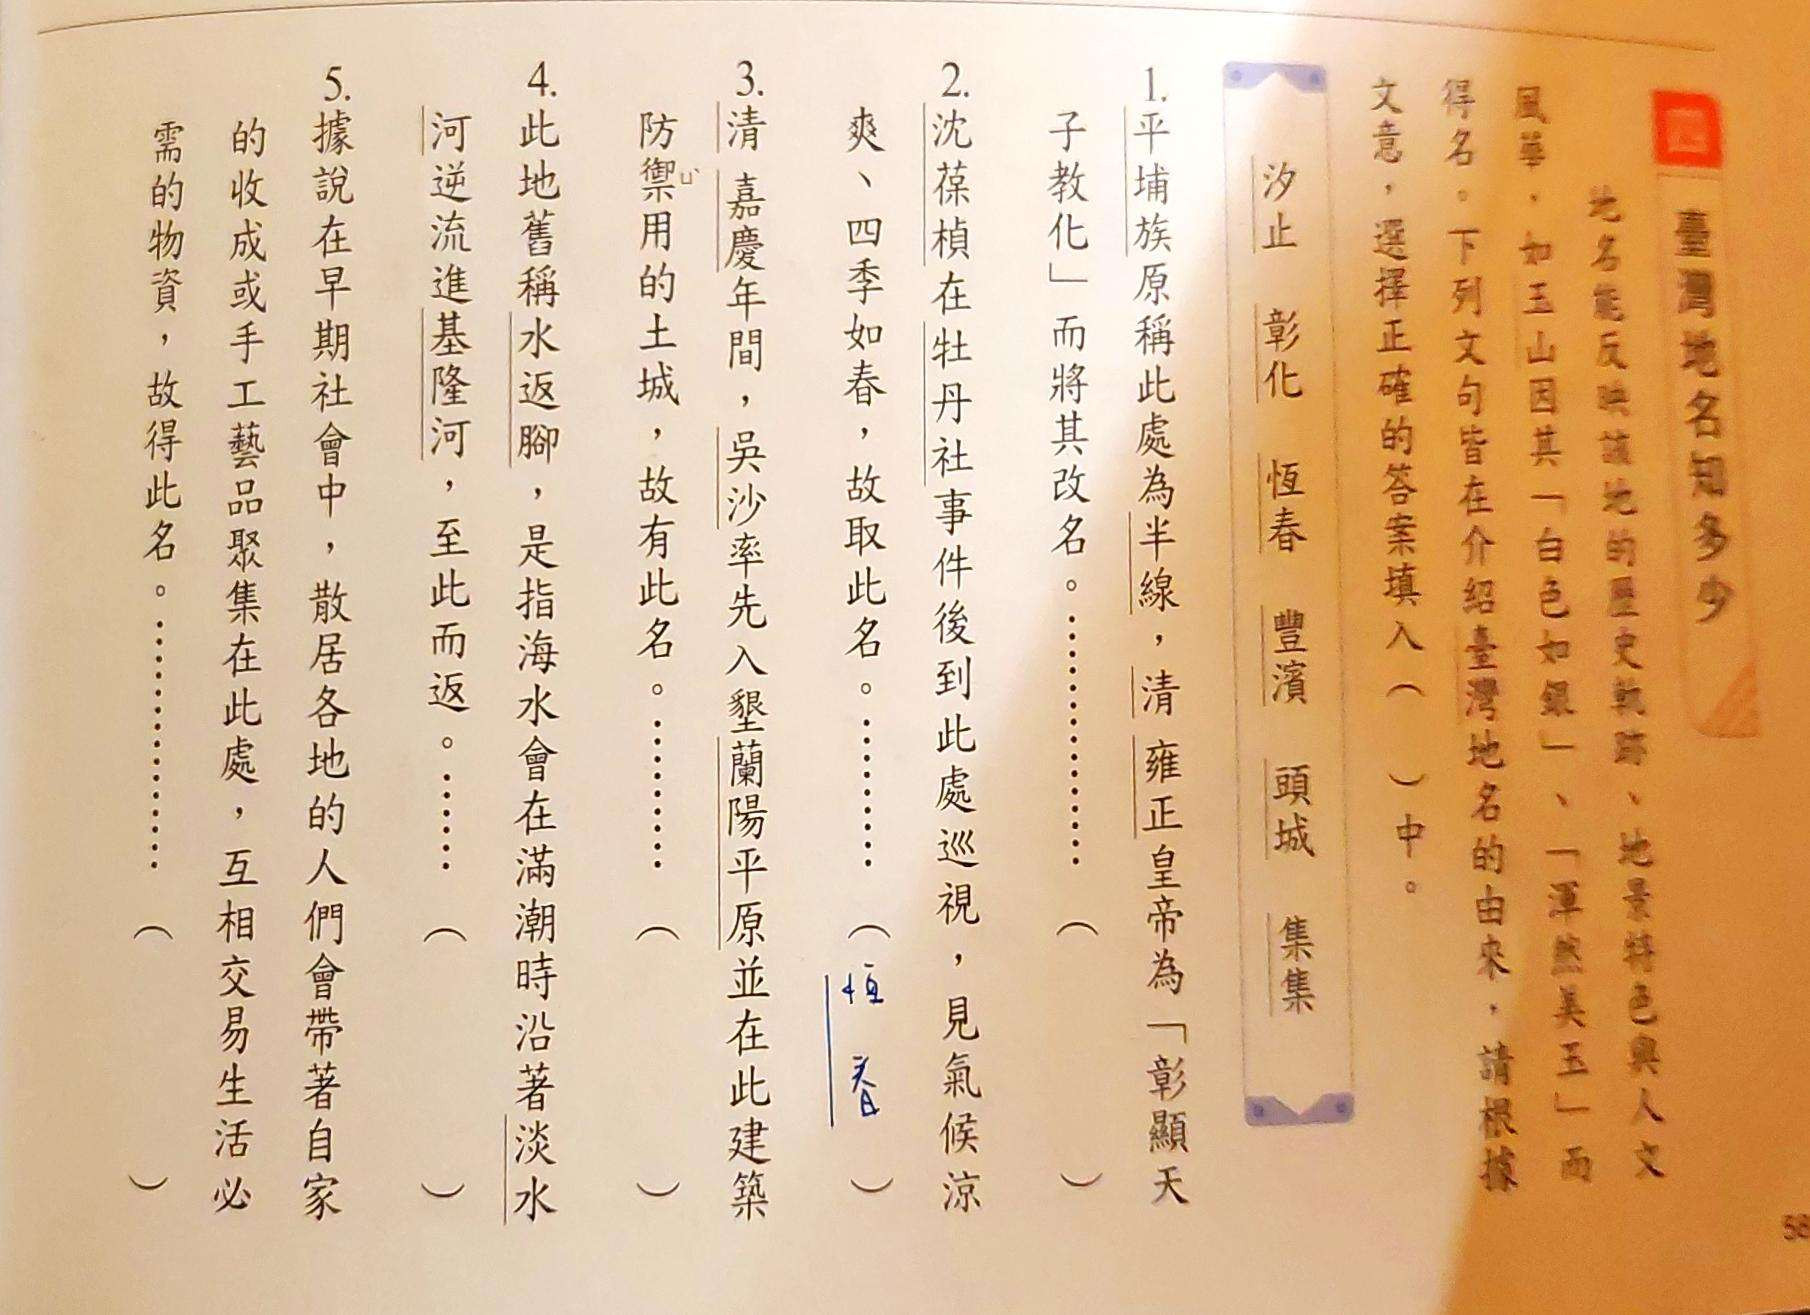 四 臺灣地名知多少
地名能反映該地的歷史軌跡、地景特色與人文
風華,如玉山因其「白色如銀」、「渾然美玉」而
得名。下列文句皆在介紹臺灣地名的由來,請根據
文意,選擇正確的答案填入( )中。
汐止 彰化 恆春 豐濱 頭城 集集
1.平埔族原稱此處為半線,清 雍正皇帝為「彰顯天
子教化」而將其改名。……………( )
2.沈葆楨在牡丹社事件後到此處巡視,見氣候涼
爽、四季如春,故取此名。………(恆春)
3.清 嘉慶年間,吳沙率先入墾蘭陽平原並在此建築
防禦ㄩˋ用的土城,故有此名。………( )
4.此地舊稱水返腳,是指海水會在滿潮時沿著淡水
河逆流進基隆河,至此而返。……( )
5.據說在早期社會中,散居各地的人們會帶著自家
的收成或手工藝品聚集在此處,互相交易生活必
需的物資,故得此名。……………( )
58